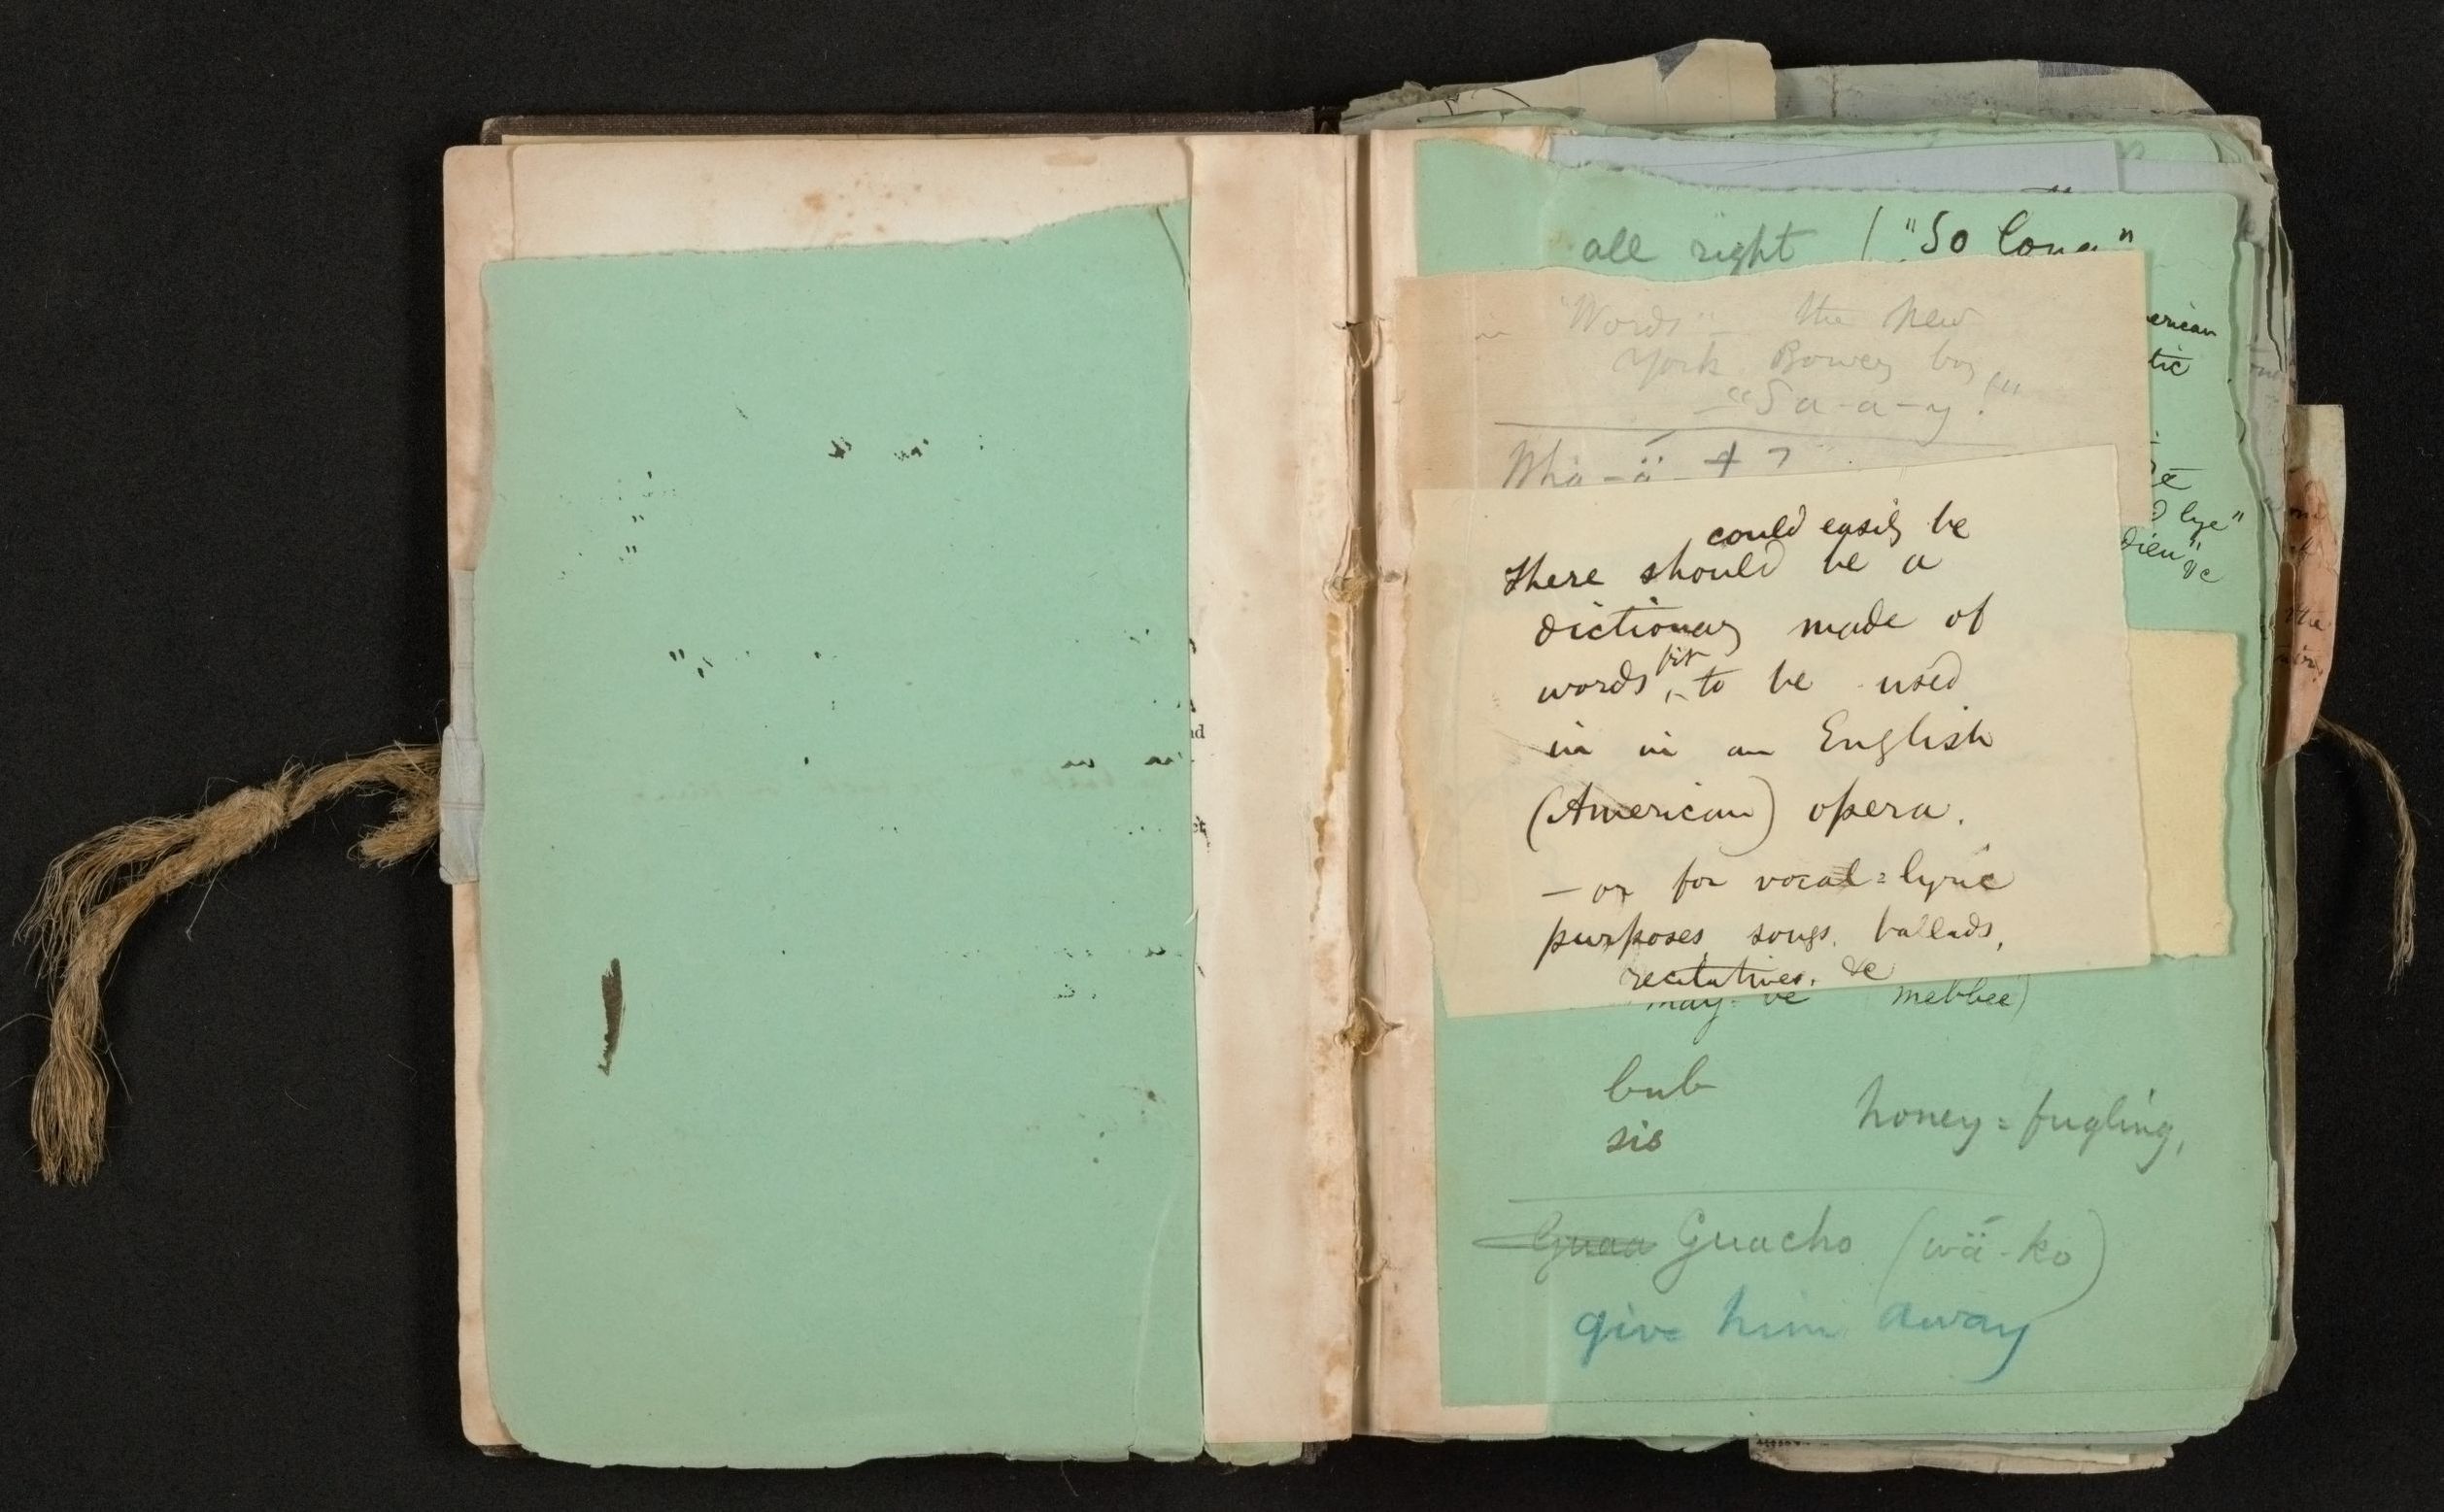 all right / "So long"
"Words" — the New
York Bowery boy
— "Sa-a-y!"
erican
tic
d bye"
dieu"
&c
could easily be
There should be a
dictionary made of
words fit to be used
in in an English
(American) opera.
— or for vocal=lyric
purposes, songs, ballads,
recitatives, &c
may-be mebbee)
bub
sis
honey=fugling,
Guaa Guacho (wä-ko)
give him away